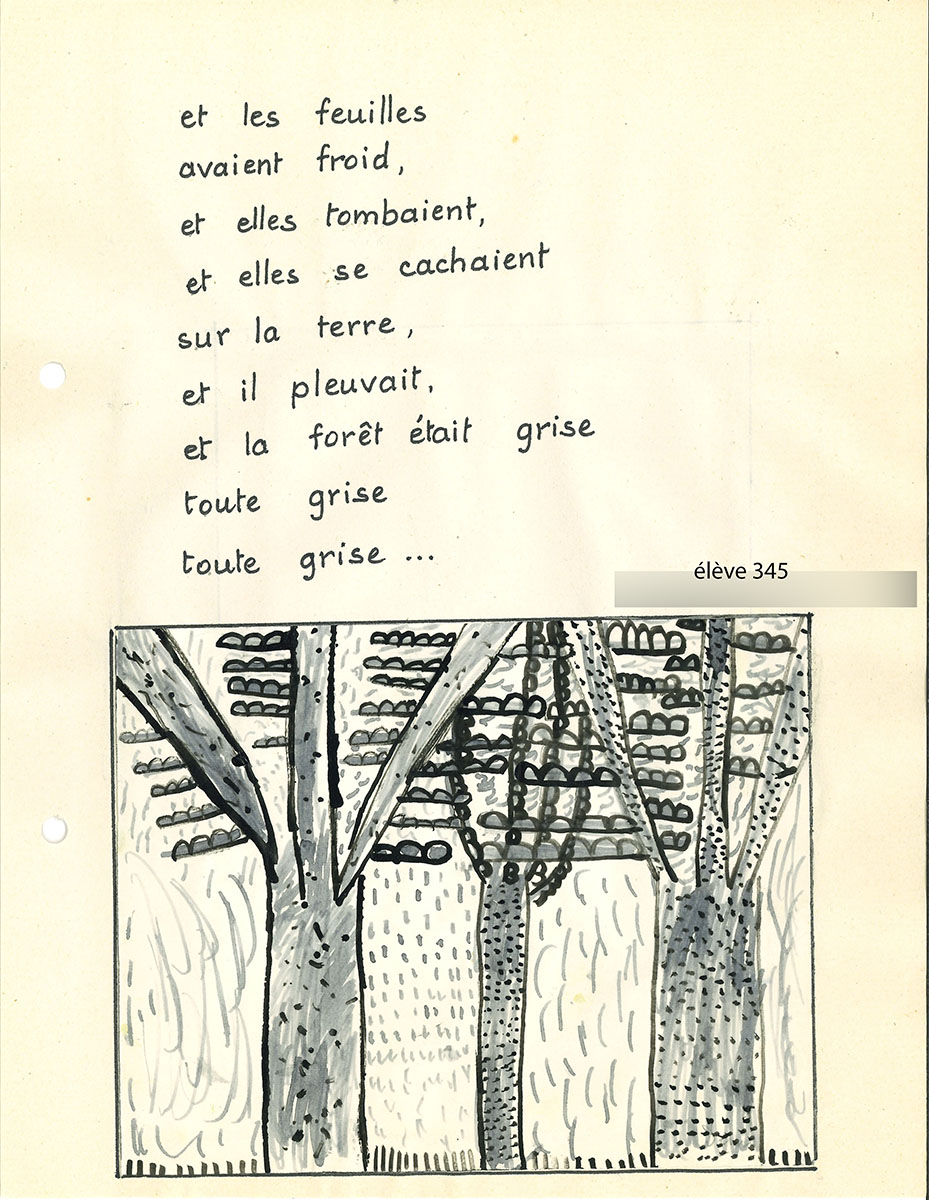 et les feuilles
avaient froid,
et elles tombaient,
et elles se cachaient
sur la terre,
et il pleuvait,
et la forêt était grise
toute grise
toute grise ...
élève 345